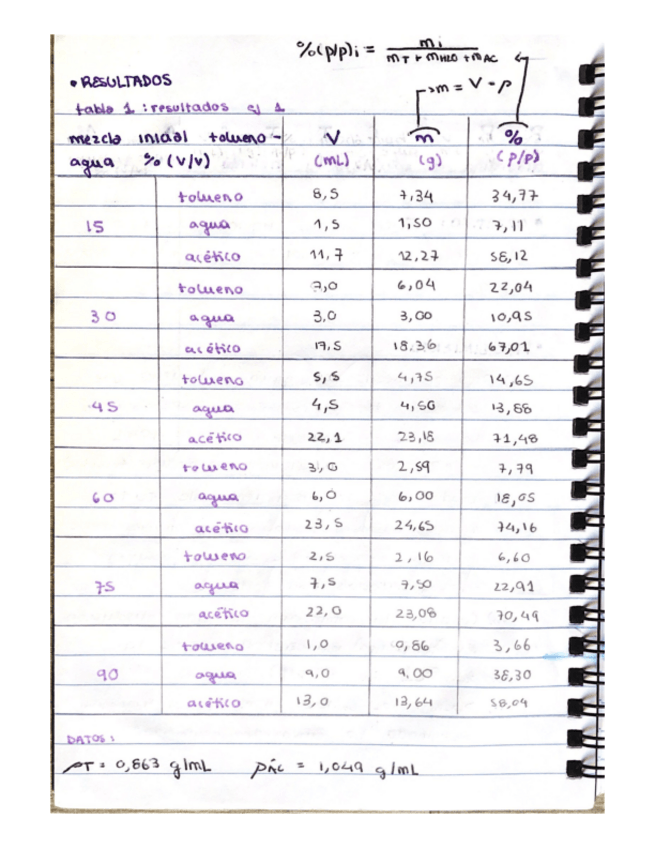 %(p/p)i = mi / mT + mH2O + mAC
• RESULTADOS
→ m = V · ρ
tabla 1 : resultados ej 1
mezcla inicial tolueno - agua % (V/V) V (mL) m (g) % (p/p)
tolueno 8,5 7,34 34,77
15 agua 1,5 1,50 7,11
acético 11,7 12,27 58,12
tolueno 7,0 6,04 22,04
30 agua 3,0 3,00 10,95
acético 17,5 18,36 67,01
tolueno 5,5 4,75 14,65
45 agua 4,5 4,50 13,88
acético 22,1 23,18 71,48
tolueno 3,0 2,59 7,79
60 agua 6,0 6,00 18,05
acético 23,5 24,65 74,16
tolueno 2,5 2,16 6,60
75 agua 7,5 7,50 22,91
acético 22,0 23,08 70,49
tolueno 1,0 0,86 3,66
90 agua 9,0 9,00 38,30
acético 13,0 13,64 58,04
DATOS:
ρT = 0,863 g/mL ρÁc = 1,049 g/mL